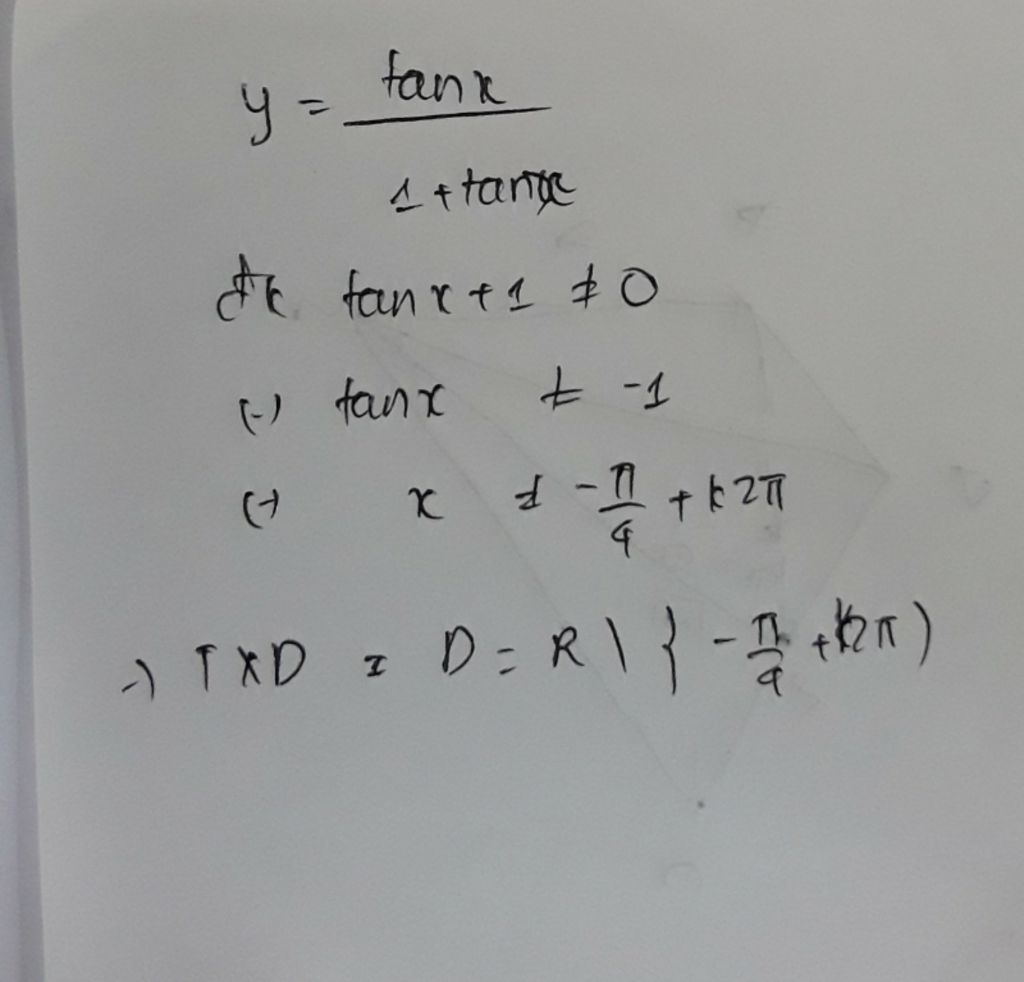 y = tanx / 1 + tanx
đk tanx + 1 ≠ 0
(-) tanx ≠ -1
(-) x ≠ -π/4 + k2π
→ TXĐ = D = R \ { -π/4 + k2π )